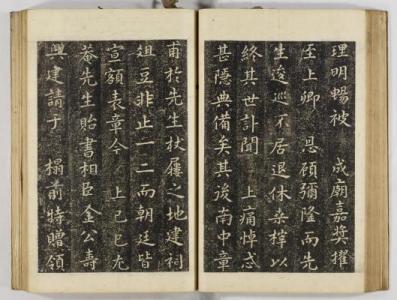 理明暢被 成廟嘉奬擢
至上卿 恩顧彌隆而先
生逡巡不居退休染梓以
終其世訃聞 上痛悼惑
甚隱典備矣其後南中章
甫於先生杖屨之地建祠
俎豆非止一二而朝廷皆
宣額表章今 上己巳尤
菴先生貽書相臣金公壽
興建請于 榻前特贈領